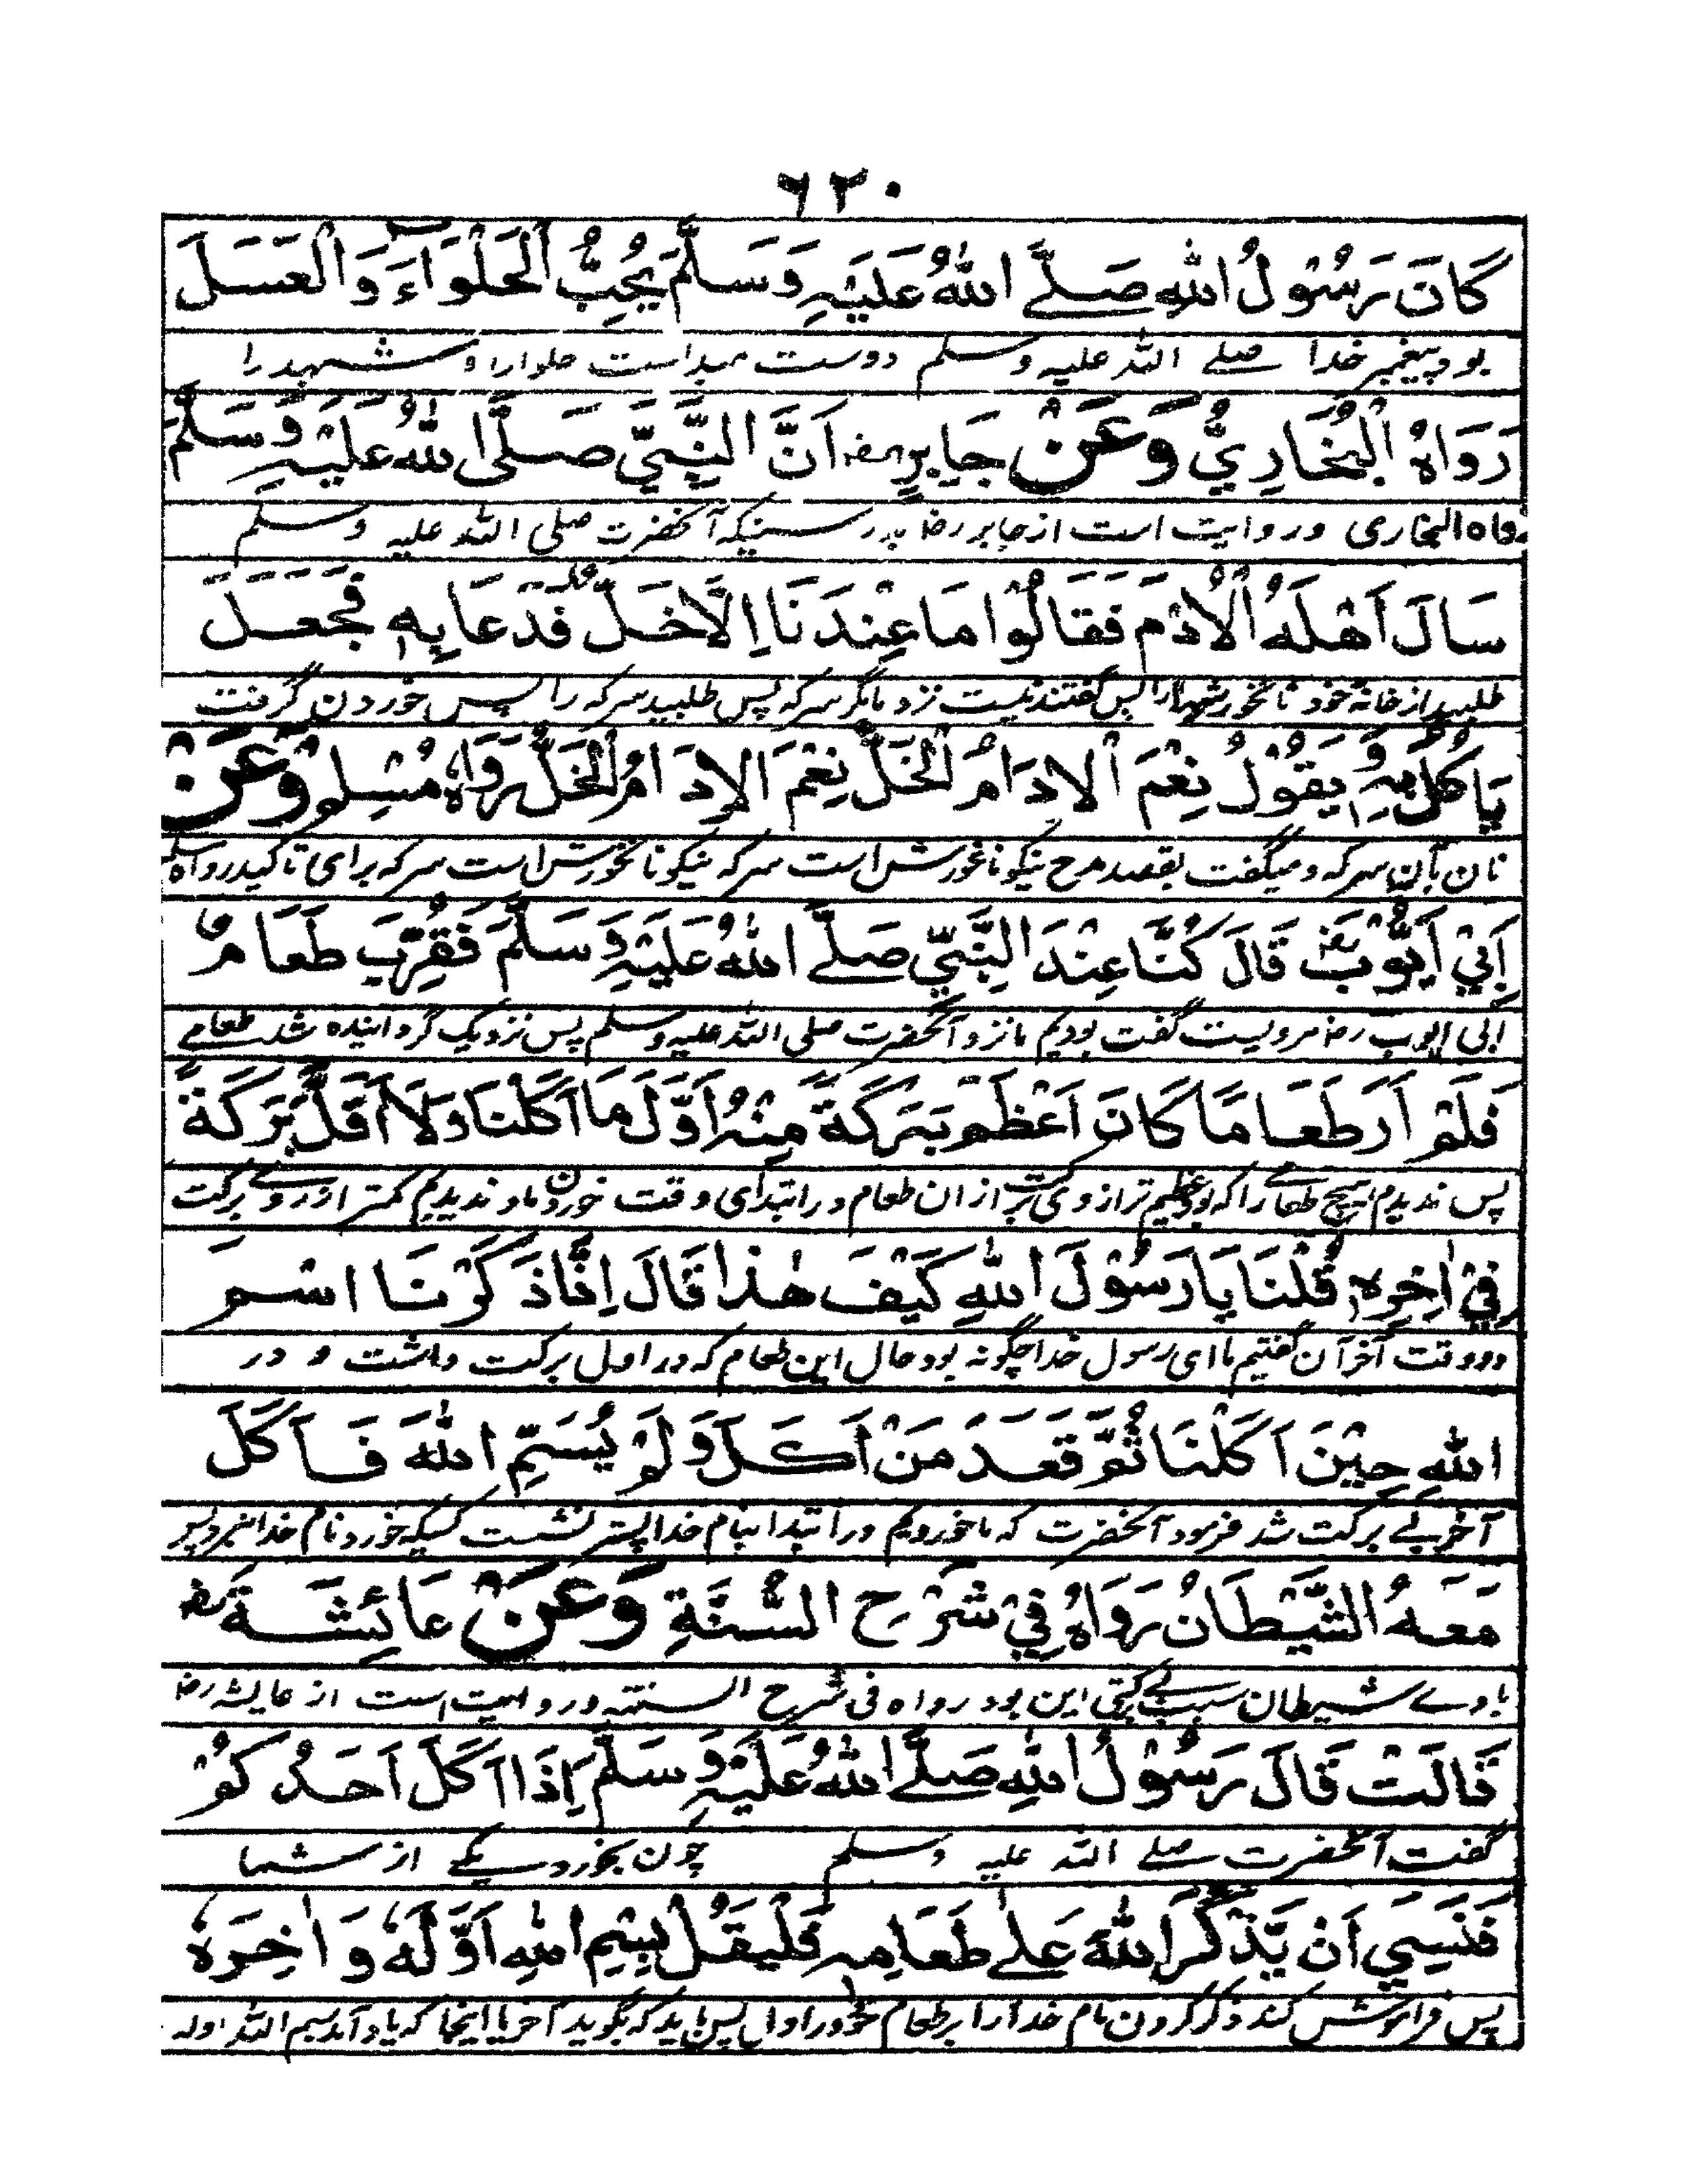 ٦٢٠
كَانَ رَسُوْلُ اللهِ صَلَّے اللهُ عَلَيْهِ وَسَلَّمَ يُحِبُّ الْحَلْوَاءَ وَالْعَسَلَ
بود پیغمبر خدا صلے اللہ علیہ وسلم دوست میداست حلوارا و شہد را
رَوَاهُ الْبُخَارِيُّ وَعَنْ جَابِرٍ رض اَنَّ النَّبِيَّ صَلَّى اللهُ عَلَيْهِ وَسَلَّمَ
رواہ البخاری و روایت است از جابر رضا بدرستیکہ آنحضرت صلی اللہ علیہ وسلم
سَالَ اَهْلَهُ الْاُدْمَ فَقَالُوْا مَا عِنْدَنَا اِلَّا خَلٌّ فَدَعَا بِهٖ فَجَعَلَ
طلبید از خانۂ خود نانخورشہارا پس گفتند نیست نزد ما مگر سرکہ پس طلبید سرکہ را پس خوردن گرفت
يَاكُلُ بِهٖ وَيَقُوْلُ نِعْمَ الْاِدَامُ الْخَلُّ نِعْمَ الْاِدَامُ الْخَلُّ رَوَاهُ مُسْلِمٌ وَعَنْ
نان بآن سرکہ و میگفت بقصد مدح نیکو نانخورش است سرکہ نیکو نانخورش است سرکہ برای تاکید رواہ مسلم
اَبِيْ اَيُّوْبَ رض قَالَ كُنَّا عِنْدَ النَّبِيِّ صَلَّے اللهُ عَلَيْهِ وَسَلَّمَ فَقُرِّبَ طَعَامٌ
ابی ایوب رضا مرویست گفت بودیم ما نزد آنحضرت صلی اللہ علیہ وسلم پس نزدیک گردانیدہ شد طعامے
فَلَمْ اَرَ طَعَامًا كَانَ اَعْظَمَ بَرَكَةً مِنْهُ اَوَّلَ مَا اَكَلْنَا وَلَا اَقَلَّ بَرَكَةً
پس ندیدم ہیچ طعامے را کہ بود عظیم تر از وی برکت از ان طعام در ابتدای وقت خوردن ما و ندیدیم کمتر از روے برکت
فِيْ اٰخِرِهٖ قُلْنَا يَا رَسُوْلَ اللهِ كَيْفَ هٰذَا قَالَ اِنَّا ذَكَرْنَا اسْمَ
در وقت آخر آن گفتیم ما ای رسول خدا چگونہ بود حال این طعام کہ در اول برکت داشت و در
اللهِ حِيْنَ اَكَلْنَا ثُمَّ قَعَدَ مَنْ اَكَلَ وَلَمْ يُسَمِّ اللهَ فَاَكَلَ
آخر بے برکت شد فرمود آنحضرت کہ ما خوردیم در ابتدا بنام خدا پستر نشست کسیکہ خورد و نام خدا نبرد پس
مَعَهُ الشَّيْطَانُ رَوَاهُ فِيْ شَرْحِ السُّنَّةِ وَعَنْ عَائِشَةَ رض
با وے شیطان سبب بے برکتی این بود رواہ فی شرح السنتہ و روایت است از عایشہ رضا
قَالَتْ قَالَ رَسُوْلُ اللهِ صَلَّے اللهُ عَلَيْهِ وَسَلَّمَ اِذَا اَكَلَ اَحَدُكُمْ
گفت آنحضرت صلے اللہ علیہ وسلم چون بخورد یکے از شما
فَنَسِيَ اَنْ يَّذْكُرَ اللهَ عَلٰے طَعَامِهٖ فَلْيَقُلْ بِسْمِ اللهِ اَوَّلَهٗ وَاٰخِرَهٗ
پس فراموش کند ذکر کردن نام خدا را بر طعام خود در اول پس باید کہ بگوید آخر یا اینجا کہ یاد آمد بسم اللہ اولہ